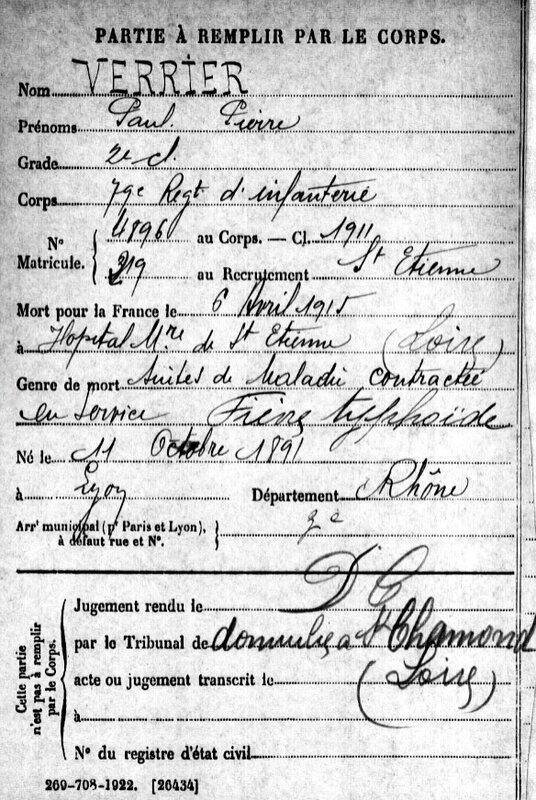 PARTIE À REMPLIR PAR LE CORPS.
Nom VERRIER
Prénoms Paul Pierre
Grade 2e cl.
Corps 79e Regt d'infanterie
N° Matricule. 4896 au Corps. — Cl. 1911
219 au Recrutement St Etienne
Mort pour la France le 6 Avril 1915
à Hopital Mre de St Etienne (Loire)
Genre de mort Suites de Maladie contractée
en Service Fièvre typhoïde
Né le 11 Octobre 1891
à Lyon Département Rhône
Arrt municipal (pr Paris et Lyon),
à défaut rue et N°. 2e
Cette partie n'est pas à remplir par le Corps.
Jugement rendu le
par le Tribunal de domicilié à St Chamond
acte ou jugement transcrit le (Loire)
à
N° du registre d'état civil
269-708-1922. [26434]